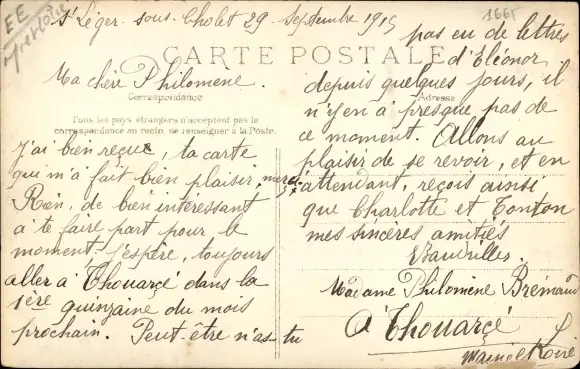 EE
1665
St Léger-sous-Cholet 29 Septembre 1915
CARTE POSTALE
Correspondance
Adresse
Tous les pays étrangers n'acceptent pas la
correspondance au recto, se renseigner à la Poste.
Ma chère Philomène.
J'ai bien reçue, ta carte
qui m'a fait bien plaisir, merci,
Rien, de bien intéressant
à te faire part pour le
moment. J'espère, toujours
aller à Thouarcé dans la
1ère quinzaine du mois
prochain. Peut-être n'as-tu
pas eu de lettres
d'Eléonor
depuis quelques jours, il
n'y en a presque pas de
ce moment. Allons au
plaisir de se revoir, et en
attendant, reçois ainsi
que Charlotte et Tonton
mes sincères amitiés
Madame Philomène Brémaud
à Thouarcé
Maine et Loire